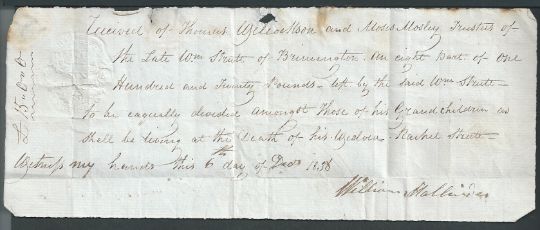 Received of Thomas Wilcockson and Moses Mosley Trustees of
the Late Wm Strutt of Brimington An eight Part of One
Hundred and Twenty Pounds - left by the said Wm Strutt -
to be equally divided amongst those of his Grand children as
shall be living at the Death of his Widow - Rachel Strutt -
Witness my hand this 6th day of Decr
William
£15..0..0